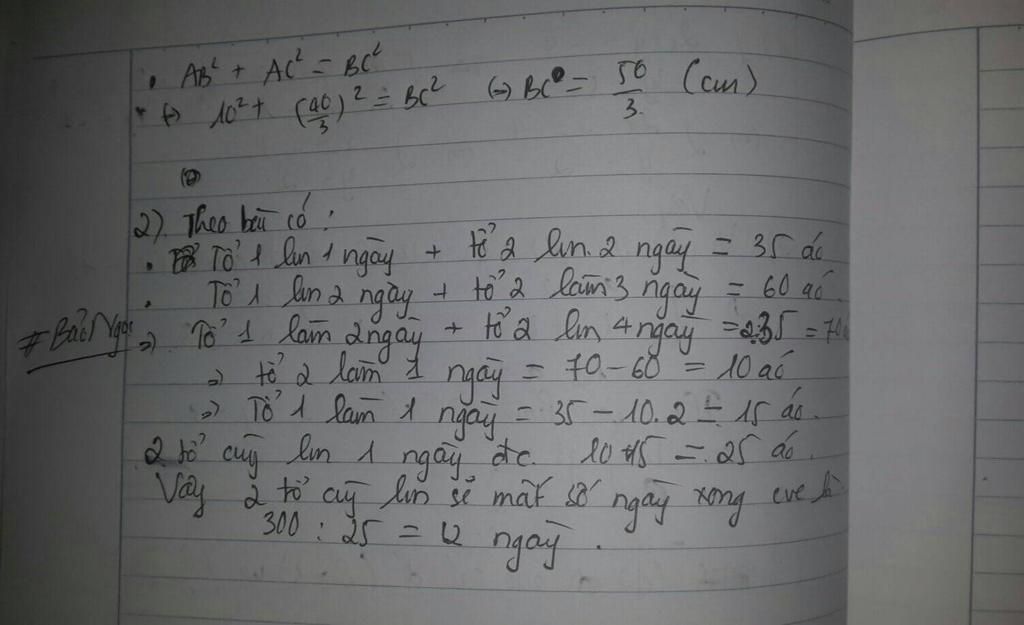 . AB² + AC² = BC²
(=) 10² + (40/3)² = BC² (=) BC = 50/3 (cm)
2) Theo bài có:
. Tổ 1 làm 1 ngày + tổ 2 làm 2 ngày = 35 áo
. Tổ 1 làm 2 ngày + tổ 2 làm 3 ngày = 60 áo
#Bảo Ngọc
=) Tổ 1 làm 2 ngày + tổ 2 làm 4 ngày = 2.35 = 70
=) tổ 2 làm 1 ngày = 70 - 60 = 10 áo
=) Tổ 1 làm 1 ngày = 35 - 10.2 = 15 áo.
2 tổ cùg làm 1 ngày đc. 10+15 = 25 áo.
Vậy 2 tổ cùg làm sẽ mất số ngày xong
300 : 25 = 12 ngày.